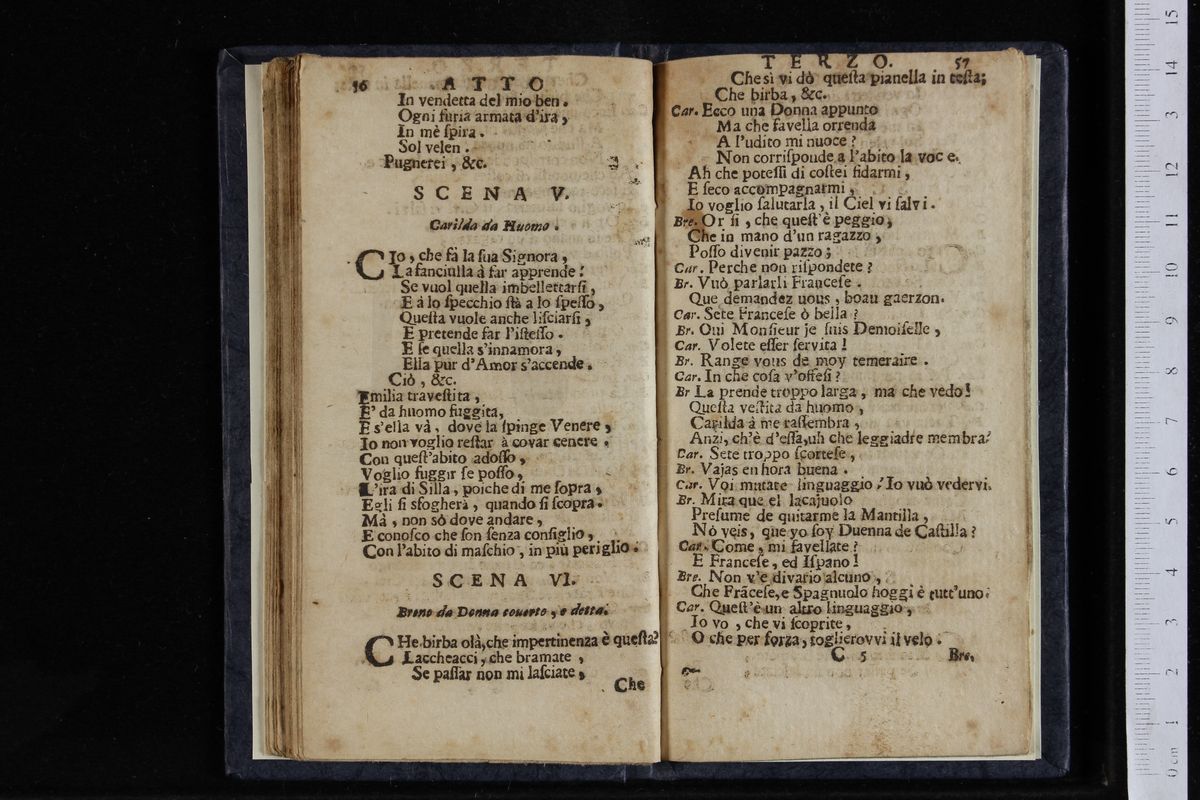 56 ATTO
In vendetta del mio ben.
Ogni furia armata d'ira,
In mè ſpira.
Sol velen.
Pugnerei, &c.
SCENA V.
Carilda da Huomo.
CIò, che fà la ſua Signora,
La fanciulla à far apprende:
Se vuol quella imbellettarſi,
E à lo ſpecchio ſtà a lo ſpeſſo,
Queſta vuole anche liſciarſi,
E pretende far l'iſteſſo.
E ſe quella s'innamora,
Ella pur d'Amor s'accende.
Ciò, &c.
Emilia traveſtita,
E' da huomo fuggita,
E s'ella và, dove la ſpinge Venere,
Io non voglio reſtar à covar cenere.
Con queſt'abito adoſſo,
Voglio fuggir ſe poſſo,
L'ira di Silla, poiche di me ſopra,
Egli ſi sfogherà, quando ſi ſcopra.
Mà, non sò dove andare,
E conoſco che ſon ſenza conſiglio,
Con l'abito di maſchio, in più periglio.
SCENA VI.
Breno da Donna couerto, e detta.
CHe birba olà, che impertinenza è queſta?
Laccheacci, che bramate,
Se paſſar non mi laſciate,
Che
TERZO. 57
Che sì vi dò queſta pianella in teſta;
Che birba, &c.
Car. Ecco una Donna appunto
Ma che favella orrenda
A l'udito mi nuoce?
Non corriſponde a l'abito la voce.
Ah che poteſſi di coſtei fidarmi,
E ſeco accompagnarmi,
Io voglio ſalutarla, il Ciel vi ſalvi.
Bre. Or ſi, che queſt'è peggio,
Che in mano d'un ragazzo,
Poſſo divenir pazzo;
Car. Perche non riſpondete?
Br. Vuò parlarli Franceſe.
Que demandez uous, boau gaerzon.
Car. Sete Franceſe ò bella?
Br. Oui Monſieur je ſuis Demoiſelle,
Car. Volete eſſer ſervita!
Br. Range vous de moy temeraire.
Car. In che coſa v'offeſi?
Br La prende troppo larga, ma che vedo!
Queſta veſtita da huomo,
Carilda à me raſſembra,
Anzi, ch'è d'eſſa, uh che leggiadre membra!
Car. Sete troppo ſcorteſe,
Br. Vajas en hora buena.
Car. Voi mutate linguaggio! Io vuò vedervi.
Br. Mira que el lacajuolo
Preſume de quitarme la Mantilla,
Nò veis, que yo ſoy Duenna de Caſtilla?
Car. Come, mi favellate?
E Franceſe, ed Iſpano!
Bre. Non v'e divario alcuno,
Che Frãceſe, e Spagnuolo hoggi è tutt'uno.
Car. Queſt'è un altro linguaggio,
Io vo, che vi ſcoprite,
O che per forza, toglierovvi il velo.
C 5 Bre.